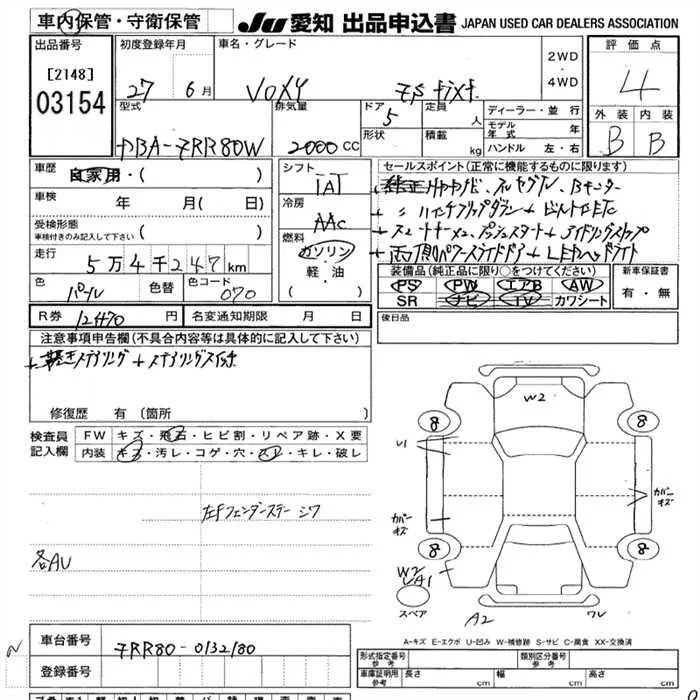 車内保管・守衛保管
JU 愛知 出品申込書 JAPAN USED CAR DEALERS ASSOCIATION
出品番号
[2148]
03154
初度登録年月
27 年 6 月
車名・グレード
VOXY ZS
2WD
4WD
評価点
4
外装 内装
B B
型式
DBA-ZRR80W
排気量
2000 CC
ドア
5
形状
定員
人
積載
kg
ディーラー・並行
モデル年式 年
ハンドル 左・右
車歴
自家用・( )
車検
年 月( 日)
受検形態
車検付きのみ記入して下さい
走行
5万4千247km
色
パール
色替
色コード
070
シフト
IAT
冷房
AAC
燃料
ガソリン
軽・油
セールスポイント(正常に機能するものに限ります)
+純正HDDナビ、フルセグTV、Bモニター
+〃 ハイインチフリップダウン+ビルトインETC
+スマートキー×2、プッシュスタート+アイドリングストップ
+両側パワースライドドア+LEDヘッドライト
装備品(純正品に限り○をつけてください)
PS PW エアB AW
SR ナビ TV カワシート
新車保証書
有・無
R券 12470 円
名変通知期限 月 日
後日品
注意事項申告欄(不具合内容等は具体的に記入して下さい)
+革巻きステアリング+ステアリングスイッチ
修復歴 有(箇所 )
検査員記入欄
FW キズ・飛石・ヒビ割・リペア跡・X要
内装 キズ・汚レ・コゲ・穴・スレ・キレ・破レ
左Fフェンダーステー シワ
各AU
W2
8
8
8
8
U1
カバーキズ
カバーキズ
W2
A1
A2
スペア
A-キズ E-エクボ U-凹み W-補修跡 S-サビ C-腐食 XX-交換済
車台番号
ZRR80-0132180
登録番号
形式指定番号
参考
類別区分番号
参考
車庫証明用
参考
長さ cm 幅 cm 高さ cm